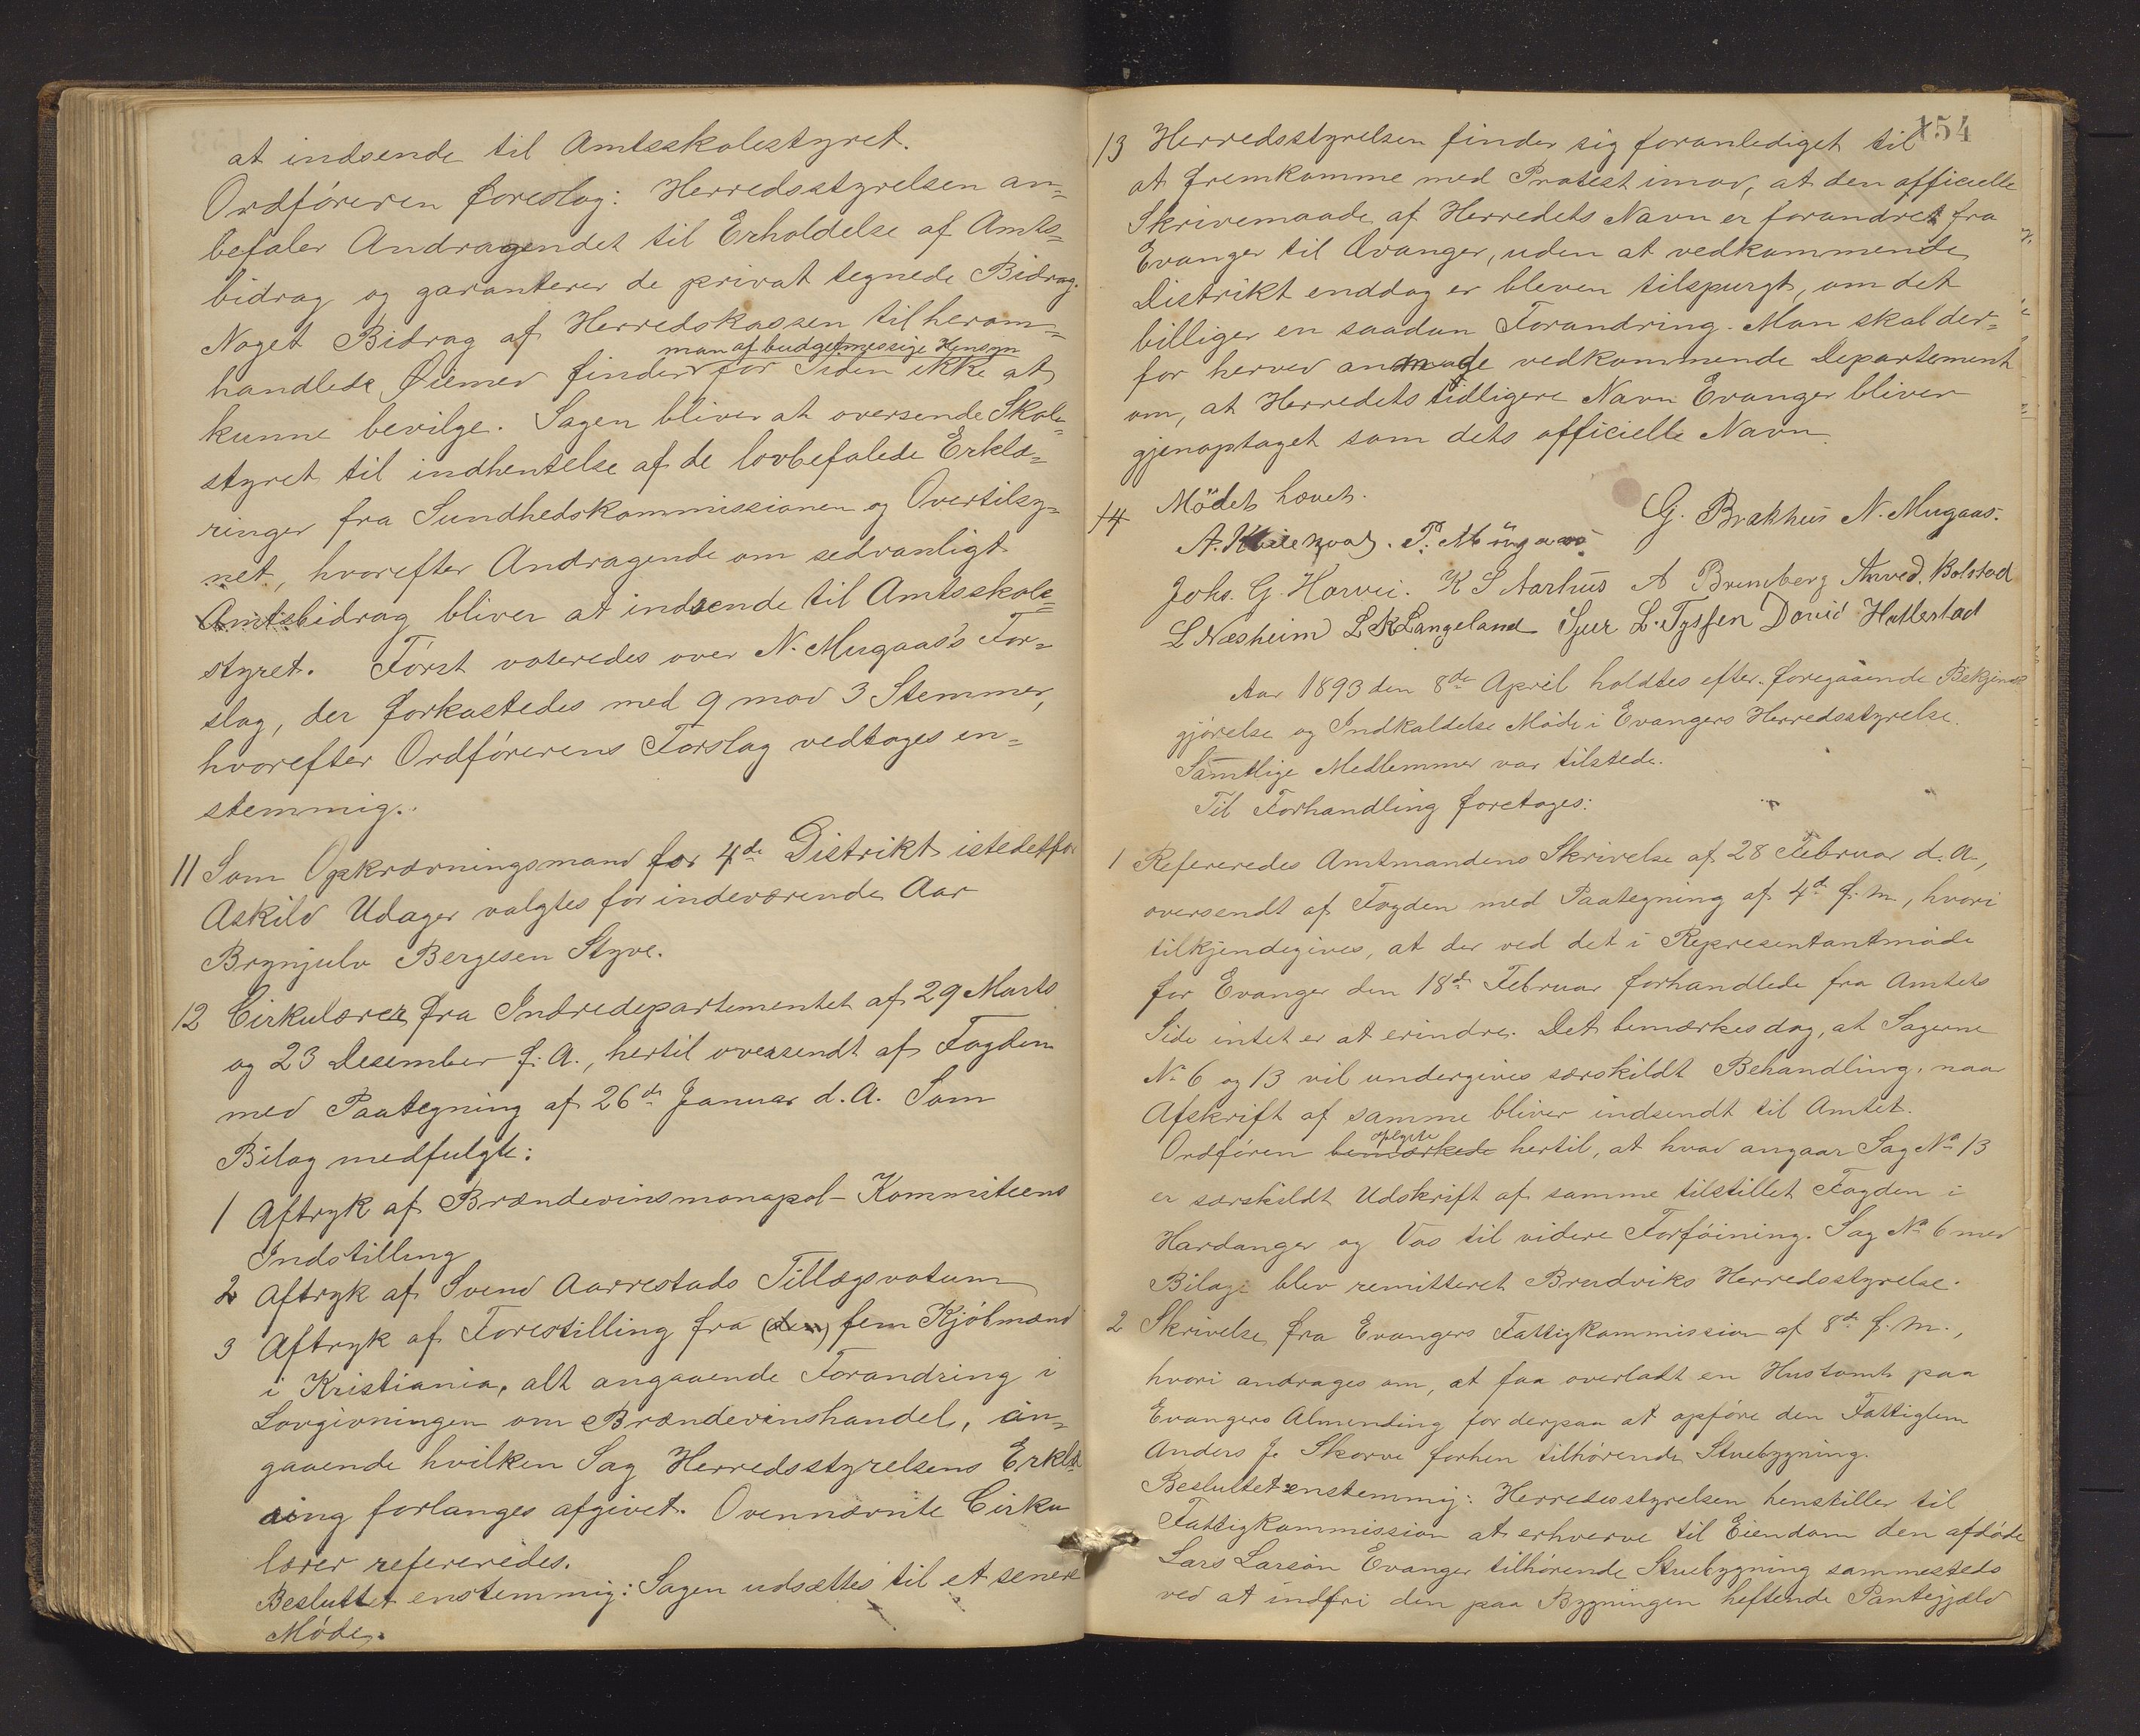 at indsende til Amtsskolestyret.
Ordføreren foreslog: Herredsstyrelsen an=
befaler Andragendet til Erholdelse af Amts=
bidrag og garanterer de privat tegnede Bidrag.
Noget Bidrag af Herredskassen til herom=
man af budgetmessige Hensyn
handlede Øiemed finder for Tiden ikke at
kunne bevilge. Sagen bliver at oversende Skole
styret til indhentelse af de lovbefalede Erklæ=
ringer fra Sundhedskommissionen og Overtilsy=
net, hvorefter Andragende om sedvanligt
Amtsbidrag bliver at indsende til Amtsskole=
styret. Først voteredes over N. Mugaas's For=
slag, der forkastedes med 9 mod 3 Stemmer,
hvorefter Ordførerens Forslag vedtoges en=
stemmig.
11 Som Opkrævningsmand for 4de Distrikt istedetfor
Askild Udager valgtes for indeværende Aar
Brynjulv Bergesen Styve.
12 Cirkulærer fra Indredepartementet af 29 Marts
og 23 Desember f. A., hertil oversendt af Fogden
med Paategning af 26de Januar d. A. Som
Bilag medfulgte:
1 Aftryk af Brændevinsmonopol-Kommiteens
Indstilling
2 Aftryk af Svend Aarrestads Tillægsvotum
3 Aftryk af Forestilling fra (den) fem Kjøbmænd
i Kristiania, alt angaaende Forandring i
Lovgivningen om Brændevinshandel, an=
gaaende hvilken Sag Herredsstyrelsens Erklæ
ring forlanges afgivet. Ovennævnte Cirku
lærer refereredes.
Besluttet enstemmig: Sagen udsættes til et senere
Møde.
154
13 Herredsstyrelsen finder sig foranlediget til
at fremkomme med Protest imod, at den officielle
Skrivemaade af Herredets Navn er forandret fra
Evanger til Ævanger, uden at vedkommende
Distrikt enddog er bleven tilspurgt, om det
billiger en saadan Forandring. Man skal der=
for herved anmode vedkommende Departement
om, at Herredets tidligere Navn Evanger bliver
gjenoptaget som dets officielle Navn.
14 Mödet hævet.
G. Brakhus N. Mugaas.
A. P. Mügaas
Johs. G. Horvei. K S Aarhus A Brunborg Anved. Bolstad
L Næsheim L K Langeland Sjur L. Tyssen David Hatlestad
Aar 1893 den 8de April holdtes efter foregaaende Bekjendt
gjørelse og Indkaldelse Møde i Evangers Herredsstyrelse.
Samtlige Medlemmer var tilstede.
Til Forhandling foretoges:
1 Refereredes Amtmandens Skrivelse af 28 Februar d. A.,
oversendt af Fogden med Paategning af 4de f. M., hvori
tilkjendegives, at der ved det i Representantmøde
for Evanger den 18de Februar forhandlede fra Amtets
Side intet er at erindre. Det bemærkes dog, at Sagerne
No 6 og 13 vil undergives særskildt Behandling, naar
Afskrift af samme bliver indsendt til Amtet.
oplyste
Ordføren bemærkede hertil, at hvad angaar Sag No 13
er særskildt Udskrift af samme tilstillet Fogden i
Hardanger og Vos til videre Forføining. Sag No 6 med
Bilage blev remitteret Bruviks Herredsstyrelse.
2 Skrivelse fra Evangers Fattigkommission af 8de f. M.,
hvori andrages om, at faa overladt en Hustomt paa
Evangers Almending for derpaa at opføre den Fattiglem
Anders J. Skorve forhen tilhørende Stuebygning.
Besluttet enstemmig: Herredsstyrelsen henstiller til
Fattigkommission at erhverve til Eiendom den afdøde
Lars Larson Evanger tilhørende Stuebygning sammesteds
ved at indfri den paa Bygningen heftende Pantegjæld